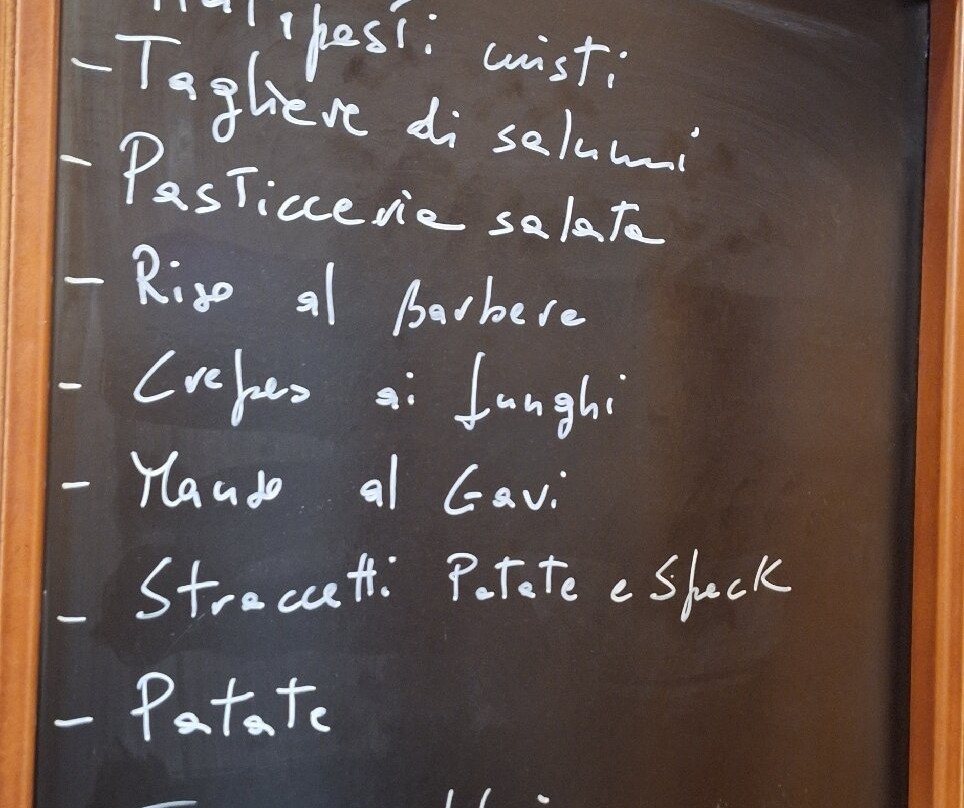 Antipasti misti
- Tagliere di salumi
- Pasticceria salata
- Riso al Barbera
- Crepes ai funghi
- Manzo al Gavi
- Straccetti Patate e Speck
- Patate